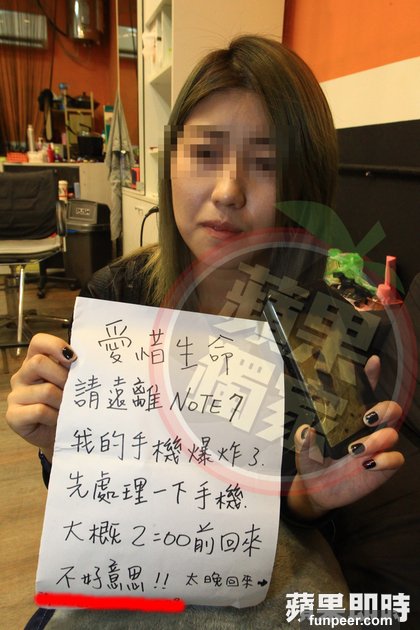 愛惜生命
請遠離NOTE7
我的手機爆炸了.
先處理一下手機.
大概2:00前回來
不好意思!! 太晚回來➡
蘋果獨家
蘋果即時
funpeer.com